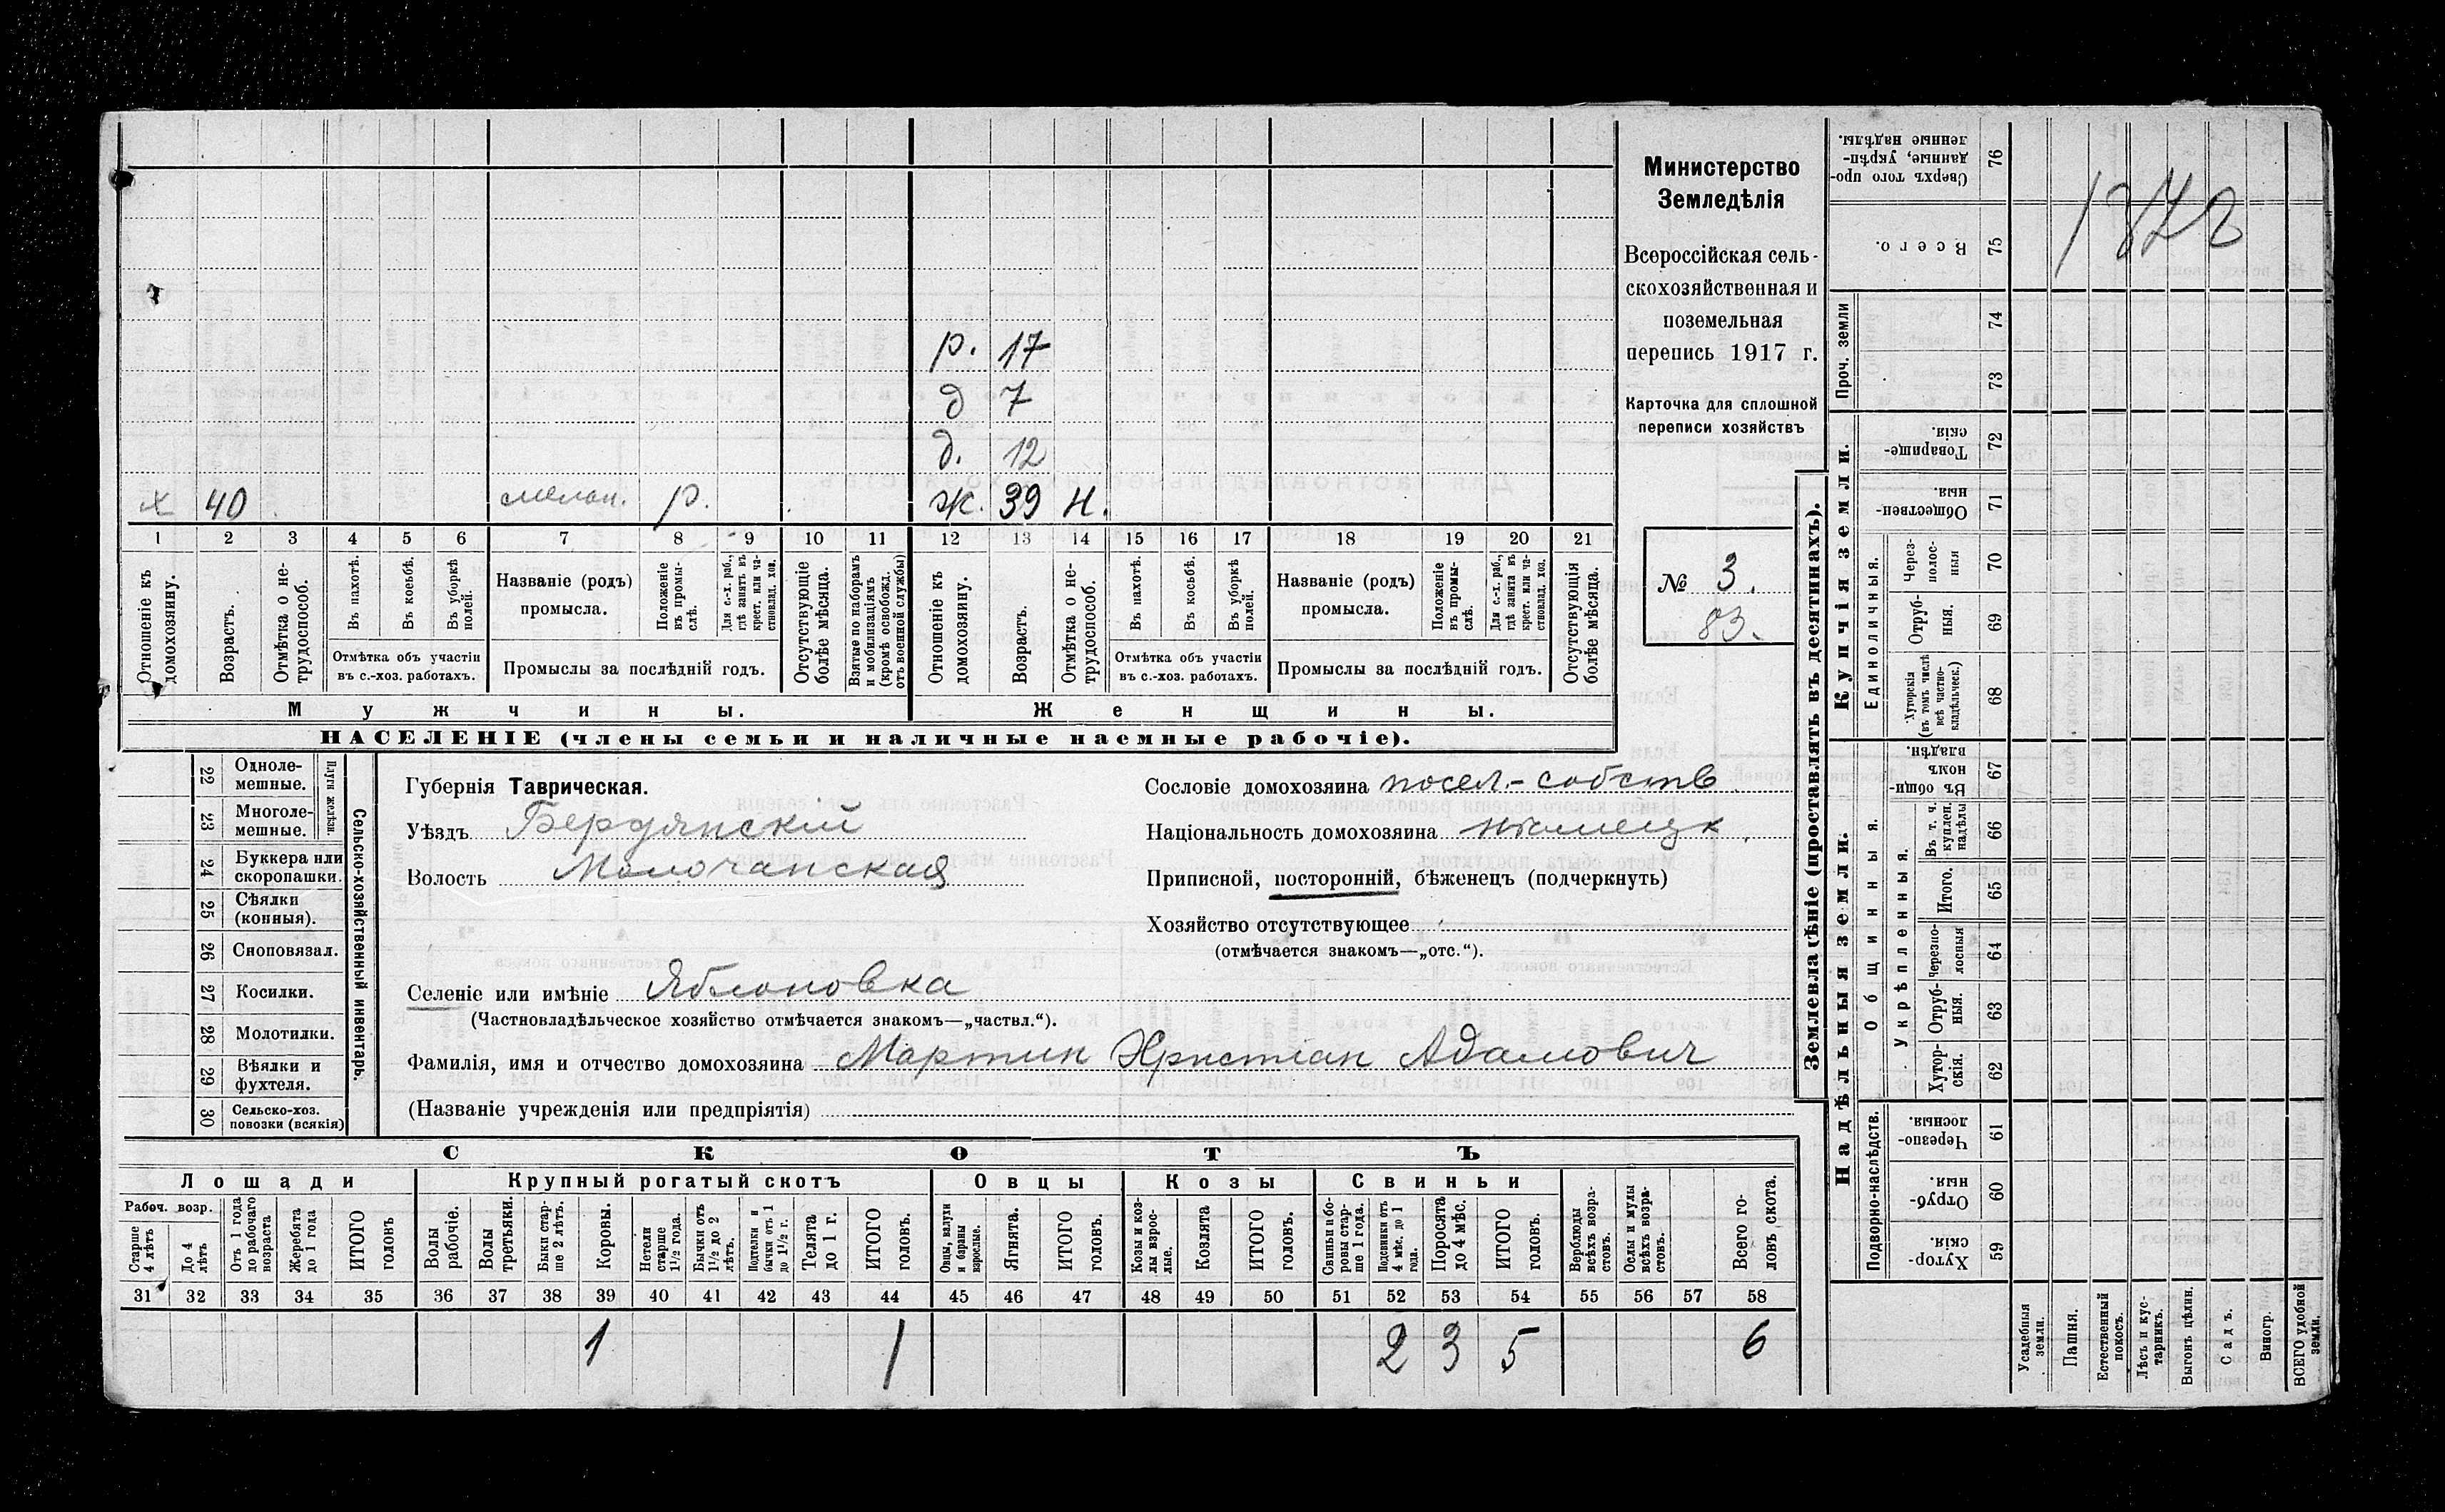 р. 17
д 7
д. 12
х 40 р. ж. 39 н.
1 2 3 4 5 6 7 8 9 10 11 12 13 14 15 16 17 18 19 20 21
Отношеніе къ домохозяину.
Возрастъ.
Отмѣтка о не-
трудоспособ.
Въ пахотѣ.
Въ косьбѣ.
Въ уборкѣ
полей.
Отмѣтка объ участіи
въ с.-хоз. работахъ.
Названіе (родъ)
промысла.
Положеніе
въ промы-
слѣ.
Для с.-х. раб.,
гдѣ занятъ въ
крест. или ча-
стновлад. хоз.
Промыслы за послѣдній годъ.
Отсутствующіе
болѣе мѣсяца.
Взятые по наборамъ
и мобилизаціямъ
(кромѣ освобожд.
отъ военной службы)
Отношеніе къ
домохозяину.
Возрастъ.
Отмѣтка о не-
трудоспособ.
Въ пахотѣ.
Въ косьбѣ.
Въ уборкѣ
полей.
Отмѣтка объ участіи
въ с.-хоз. работахъ.
Названіе (родъ)
промысла.
Положеніе
въ промы-
слѣ.
Для с.-х. раб.,
гдѣ занята въ
крест. или ча-
стновлад. хоз.
Промыслы за послѣдній годъ.
Отсутствующія
болѣе мѣсяца.
Мужчины. Женщины.
НАСЕЛЕНІЕ (члены семьи и наличные наемные рабочіе).
Министерство
Земледѣлія
Всероссійская сель-
скохозяйственная и
поземельная
перепись 1917 г.
Карточка для сплошной
переписи хозяйствъ
№ 3.
83.
22 Одноле-
мешные.
23 Многоле-
мешные.
Плуги желѣзн.
24 Буккера или
скоропашки.
25 Сѣялки
(конныя).
26 Сноповязал.
27 Косилки.
28 Молотилки.
29 Вѣялки и
фухтеля.
30 Сельско-хоз.
повозки (всякія)
Сельско-хозяйственный инвентарь.
Губернія Таврическая.
Уѣздъ Бердянскій
Волость Молочанская
Сословіе домохозяина посел.-собств
Національность домохозяина
Приписной, посторонній, бѣженецъ (подчеркнуть)
Хозяйство отсутствующее
(отмѣчается знакомъ—„отс.“).
Селеніе или имѣніе Яблоновка
(Частновладѣльческое хозяйство отмѣчается знакомъ—„частвл.“).
Фамилія, имя и отчество домохозяина Мартин Христіан Адамович
(Названіе учрежденія или предпріятія)
СКОТЪ
Лошади Крупный рогатый скотъ Овцы Козы Свиньи
Рабоч. возр.
Старше
4 лѣтъ
До 4
лѣтъ
Отъ 1 года
до рабочаго
возраста
Жеребята
до 1 года
ИТОГО
головъ
Волы
рабочіе.
Волы
третьяки.
Быки стар-
ше 2 лѣтъ.
Коровы.
Нетели
старше
1½ года.
Бычки отъ
1½ до 2
лѣтъ.
Подтелки и
бычки отъ 1
до 1½ г.
Телята
до 1 г.
ИТОГО
головъ.
Овцы, валухи
и бараны
взрослые.
Ягнята.
ИТОГО
головъ.
Козы и коз-
лы взрос-
лые.
Козлята
ИТОГО
головъ.
Свиньи и бо-
ровы стар-
ше 1 года.
Подсвинки отъ
4 мѣс. до 1
года.
Поросята
до 4 мѣс.
ИТОГО
головъ.
Верблюды
всѣхъ возра-
стовъ.
Ослы и мулы
всѣхъ возра-
стовъ.
Всего го-
ловъ скота.
31 32 33 34 35 36 37 38 39 40 41 42 43 44 45 46 47 48 49 50 51 52 53 54 55 56 57 58
1 1 2 3 5 6
Землевладѣніе (проставлять въ десятинахъ).
Купчія земли.
Надѣльныя земли.
Сверхъ того про-
данные, укрѣп-
ленные надѣлы.
76
Всего.
75
Проч. земли
74
73
Товарище-
скія.
72
Обществен-
ныя.
71
Единоличныя.
Через-
полос-
ныя
70
Отруб-
ныя.
69
Хуторскія
(въ томъ числѣ
всѣ частно-
владѣльческ.)
68
Общинныя.
Въ общин-
номъ
владѣн.
67
Укрѣпленныя.
Въ т. ч.
куплен.
надѣлы
66
Итого.
65
Черезпо-
лосныя
64
Отруб-
ныя.
63
Хутор-
скія.
62
Подворно-наслѣдств.
Черезпо-
лосныя.
61
Отруб-
ныя.
60
Хутор-
скія.
59
Усадебныя
земли.
Пашня.
Естественный
покосъ.
Лѣсъ и кус-
тарникъ.
Выгонъ цѣлин.
Садъ.
Виногр.
ВСЕГО удобной
земли.